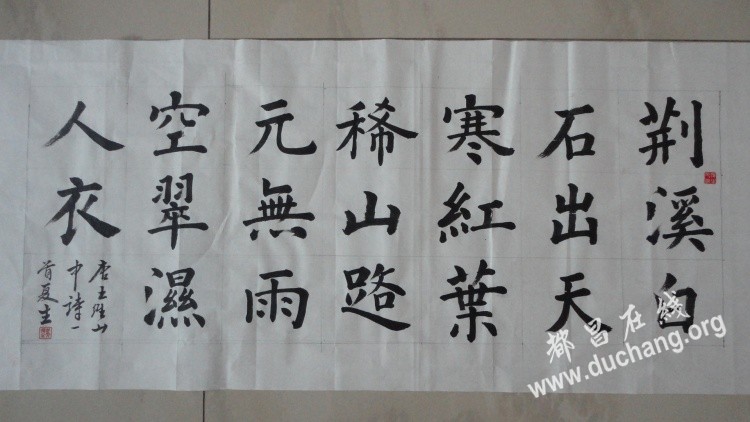 荆溪白
石出天
寒紅葉
稀山路
元無雨
空翠濕
人衣
唐王維山
中詩一
首夏生
都昌在线
www.duchang.org